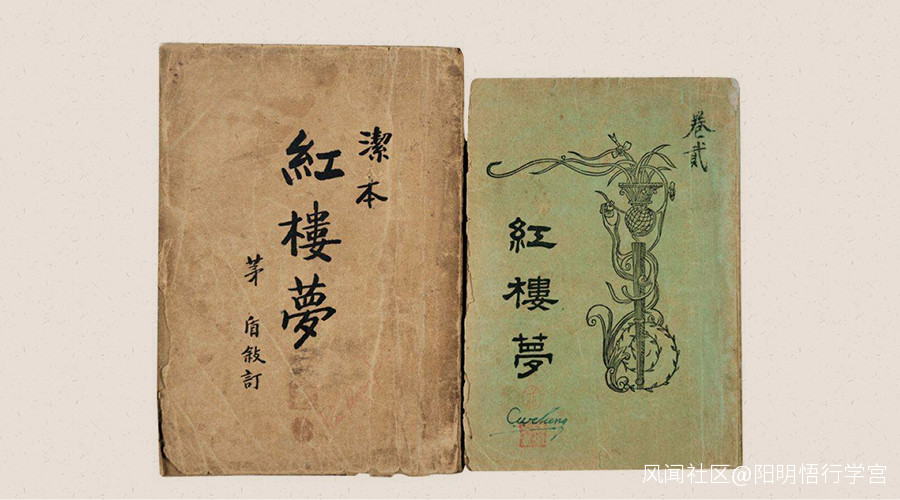 潔本
紅樓夢
茅盾敘訂
卷貳
紅樓夢
风闻社区@阳明悟行学宫